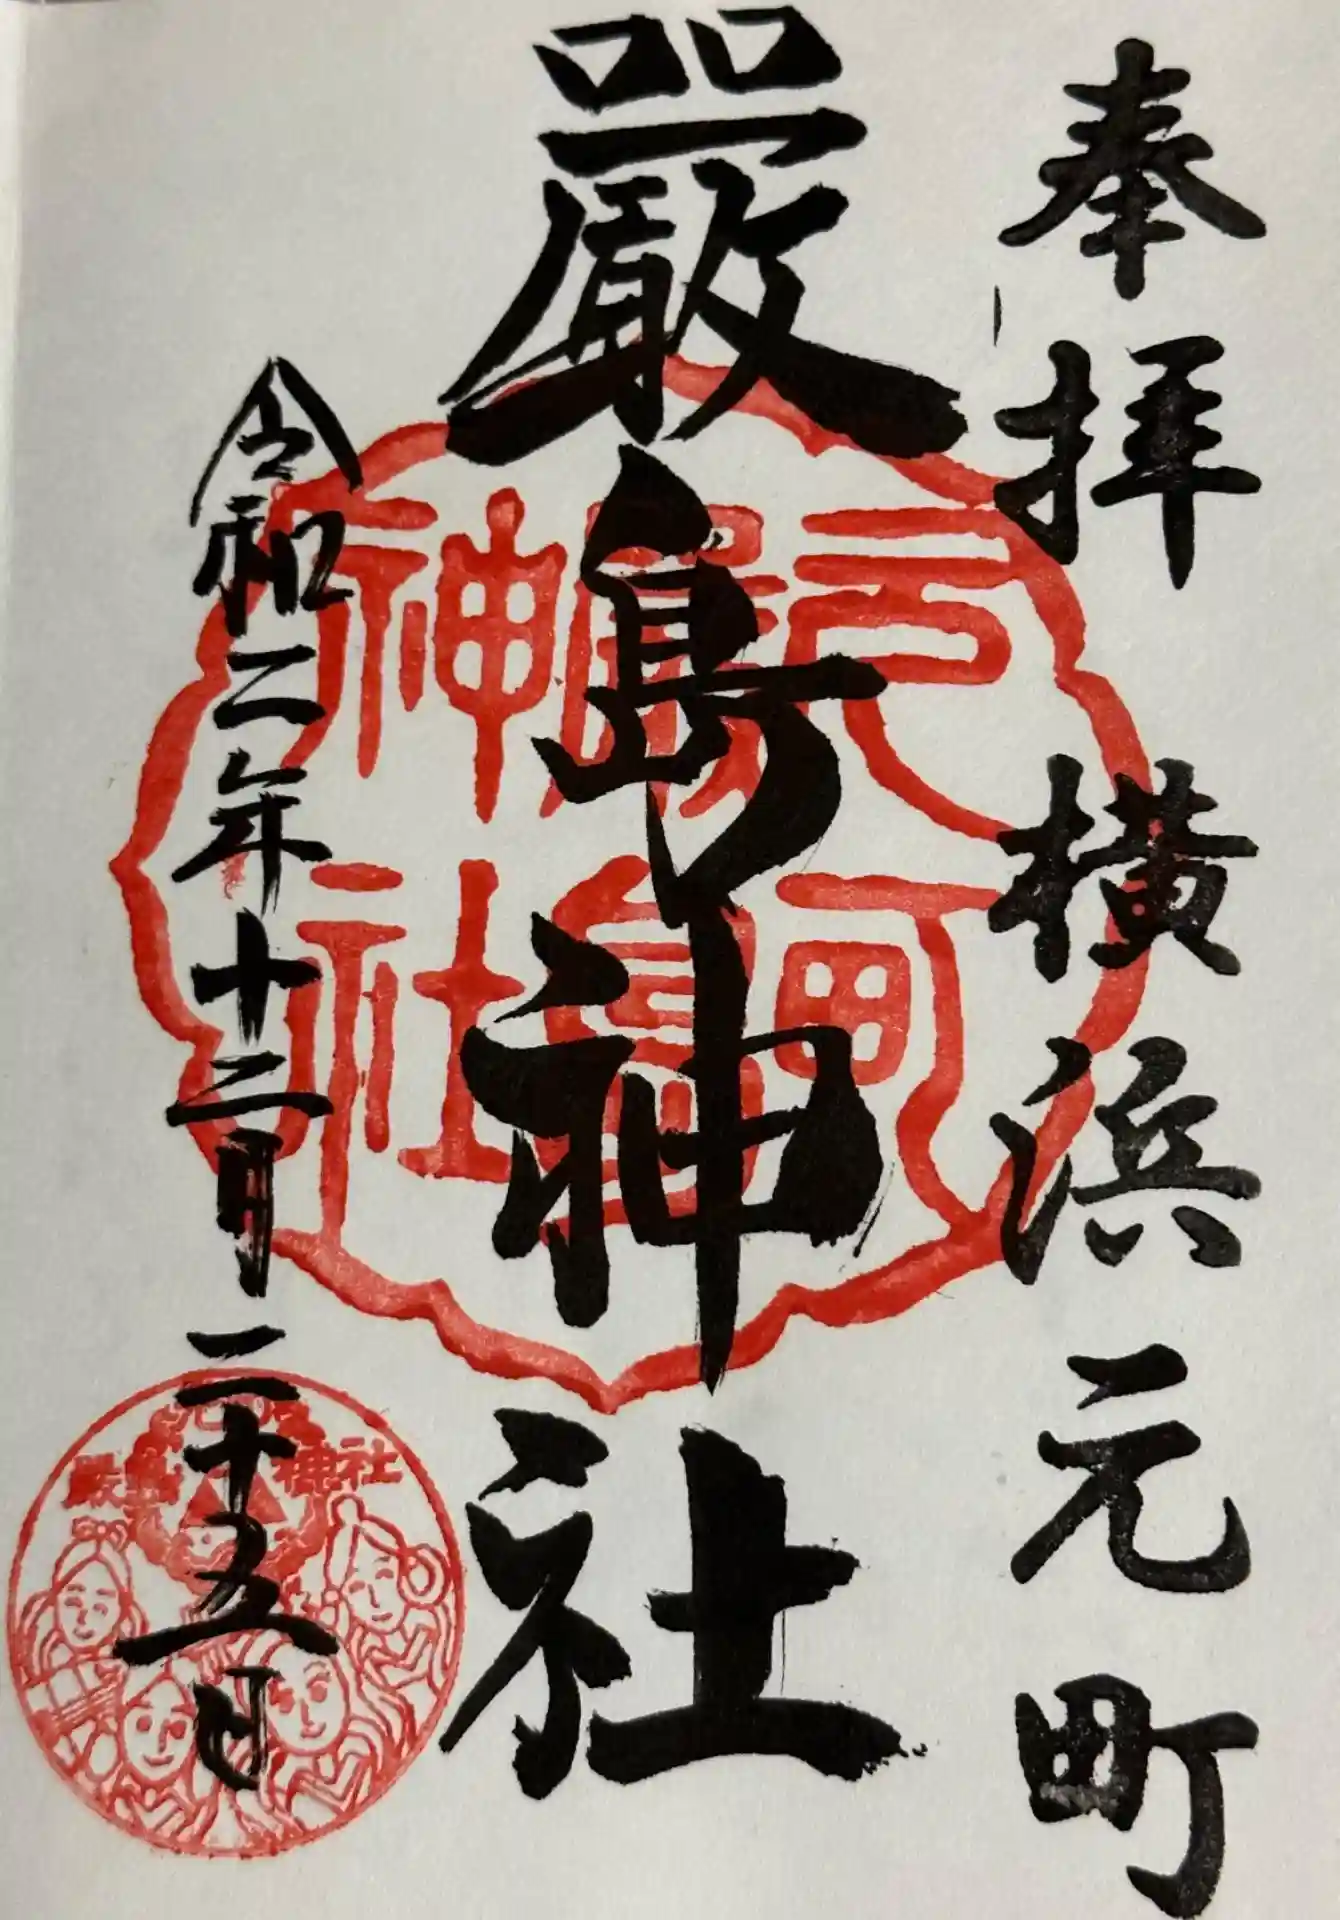 奉拝 横浜元町
嚴島神社
令和二年十二月二十五日
元町
嚴島
神社
嚴島神社